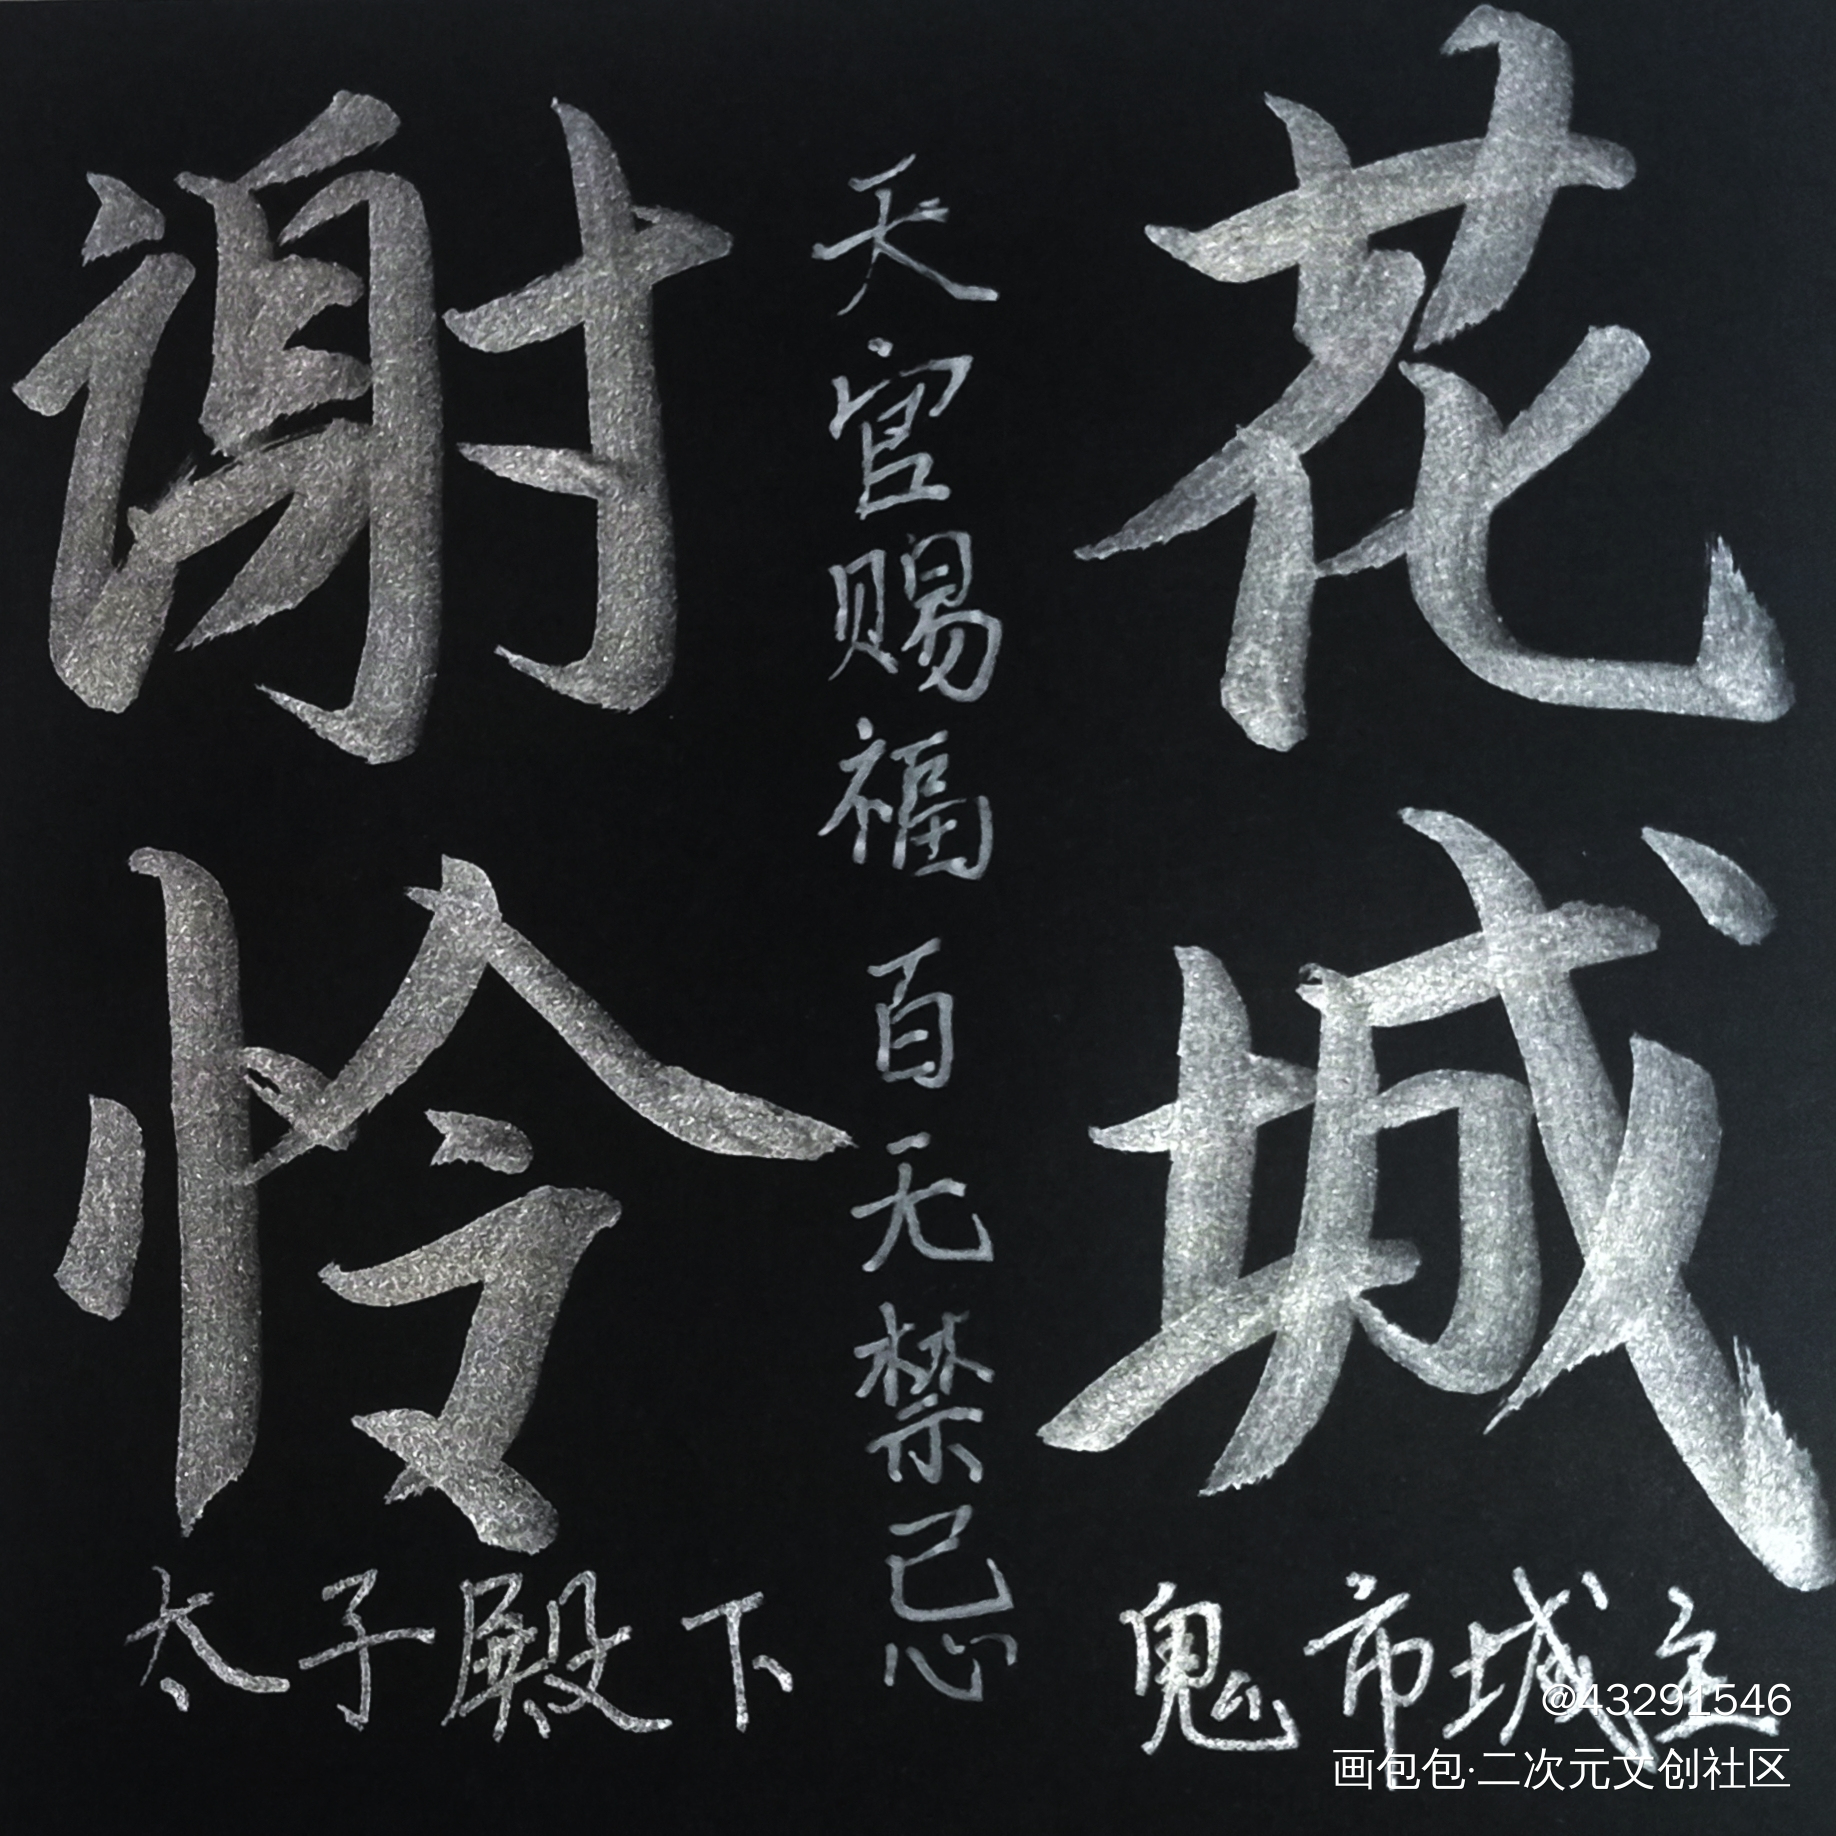 花城
鬼市城主
天官赐福 百无禁忌
谢怜
太子殿下
@43291546
画包包·二次元文创社区